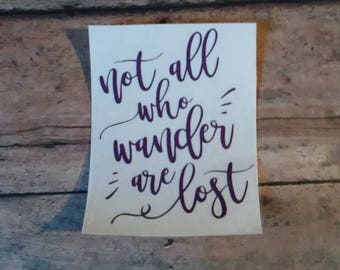 not all
who
wander
are lost